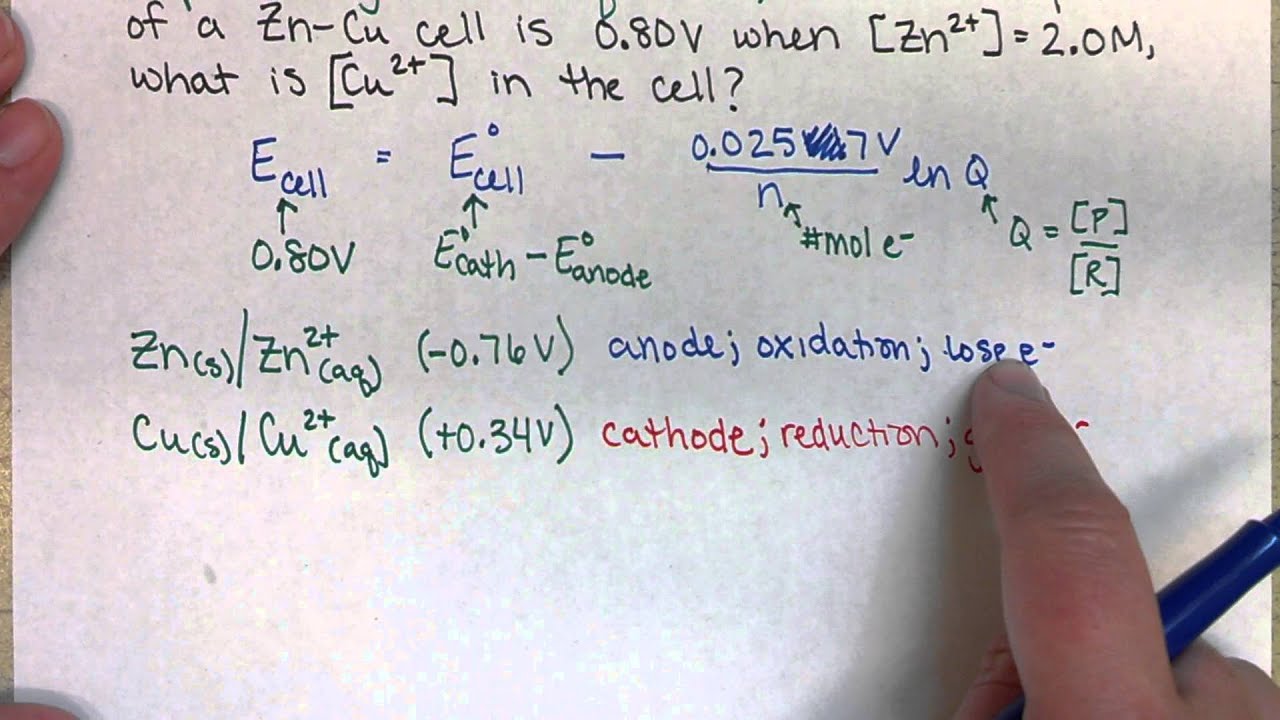 of a Zn-Cu cell is 0.80V when [Zn²⁺] = 2.0M,
what is [Cu²⁺] in the cell?
E cell = E° cell - 0.0257V / n ln Q
0.80V E°cath - E°anode #mol e⁻ Q = [P] / [R]
Zn(s)/Zn²⁺(aq) (-0.76V) anode; oxidation; lose e⁻
Cu(s)/Cu²⁺(aq) (+0.34V) cathode; reduction;